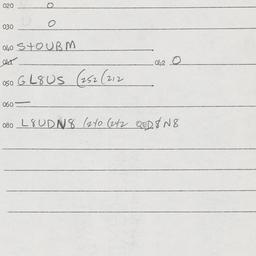 020 0
030 0
040 STOUBM
041 042 0
050 GL8US (252 (212
060 —
080 L8UDN8 (240 (242 QED8N8